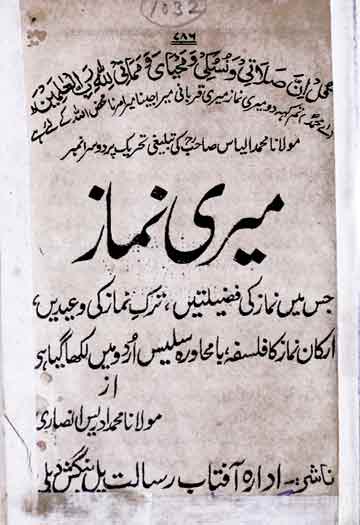 1032
۷۸۶
قل ان صلاتی و نسکی و محیای و مماتی للہ رب العلمین
(اے محمدؐ) تم کہہ دو میری نماز میری قربانی میرا جینا میرا مرنا محض اللہ کے لئے ہے
مولانا محمد الیاس صاحبؒ کی تبلیغی تحریک پر دوسرا نمبر
میری نماز
جس میں نماز کی فضیلتیں، ترک نماز کی وعیدیں،
ارکان نماز کا فلسفہ با محاورہ سلیس اردو میں لکھا گیا ہے
از
مولانا محمد ادریس انصاری
ناشر:- ادارہ آفتاب رسالت پل بنگش دہلی